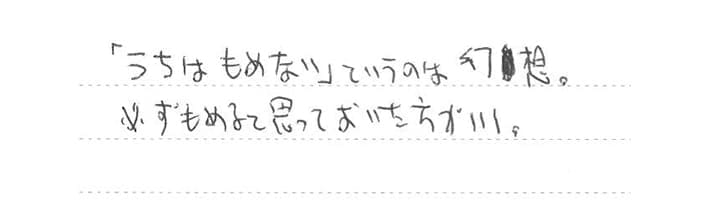 「うちはもめない」ていうのは幻想。
必ずもめるて思っておいた方がいい。